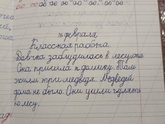 февраля
Классная работа
Девочка заблудилась в лесу.
Она пришла к домику. Там
жили три медведя. Медведей
дома не было. Они ушли гулять
по лесу.